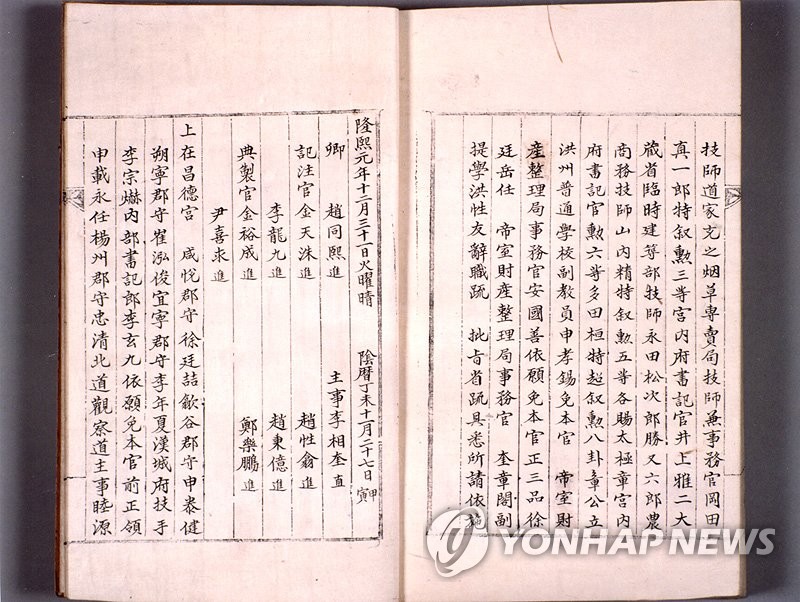 技師道家充之烟草專賣局技師兼事務官岡田
真一郎特叙勲三等宮内府書記官井上雅二大
藏省臨時建築部技師永田松次郎勝又六郎農
商務技師山内精特叙勲五等各賜太極章宮内
府書記官勲六等多田桓特超叙勲八卦章公立
洪州普通學校副教員申孝錫免本官 帝室財
産整理局事務官安國善依願免本官正三品徐
廷岳任 帝室財産整理局事務官 奎章閣副
提學洪性友辭職疏 批旨省疏具悉所請依施
隆熙元年十二月三十一日火曜晴 陰暦丁未十一月二十七日甲寅
卿 趙同熙進 主事李相奎直
記注官金天洙進 趙性龠進
李龍九進 趙東億進
典製官金裕成進 鄭樂鵬進
尹喜求進
上在昌德宮 咸悅郡守徐廷喆歙谷郡守申泰健
朔寧郡守崔泓俊宜寧郡守李年夏漢城府技手
李宗爀内部書記郎李玄九依願免本官前正領
申載永任楊州郡守忠清北道觀察道主事睦源
YONHAP NEWS